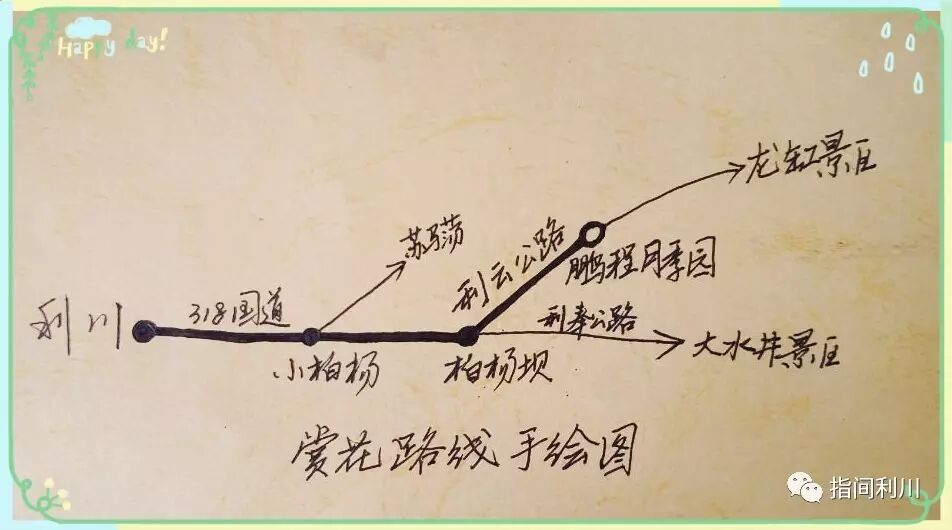 Happy day!
龙缸景区
苏马荡
利云公路
鹏程月季园
利川
318国道
利奉公路
大水井景区
小柏杨
柏杨坝
赏花路线手绘图
指间利川